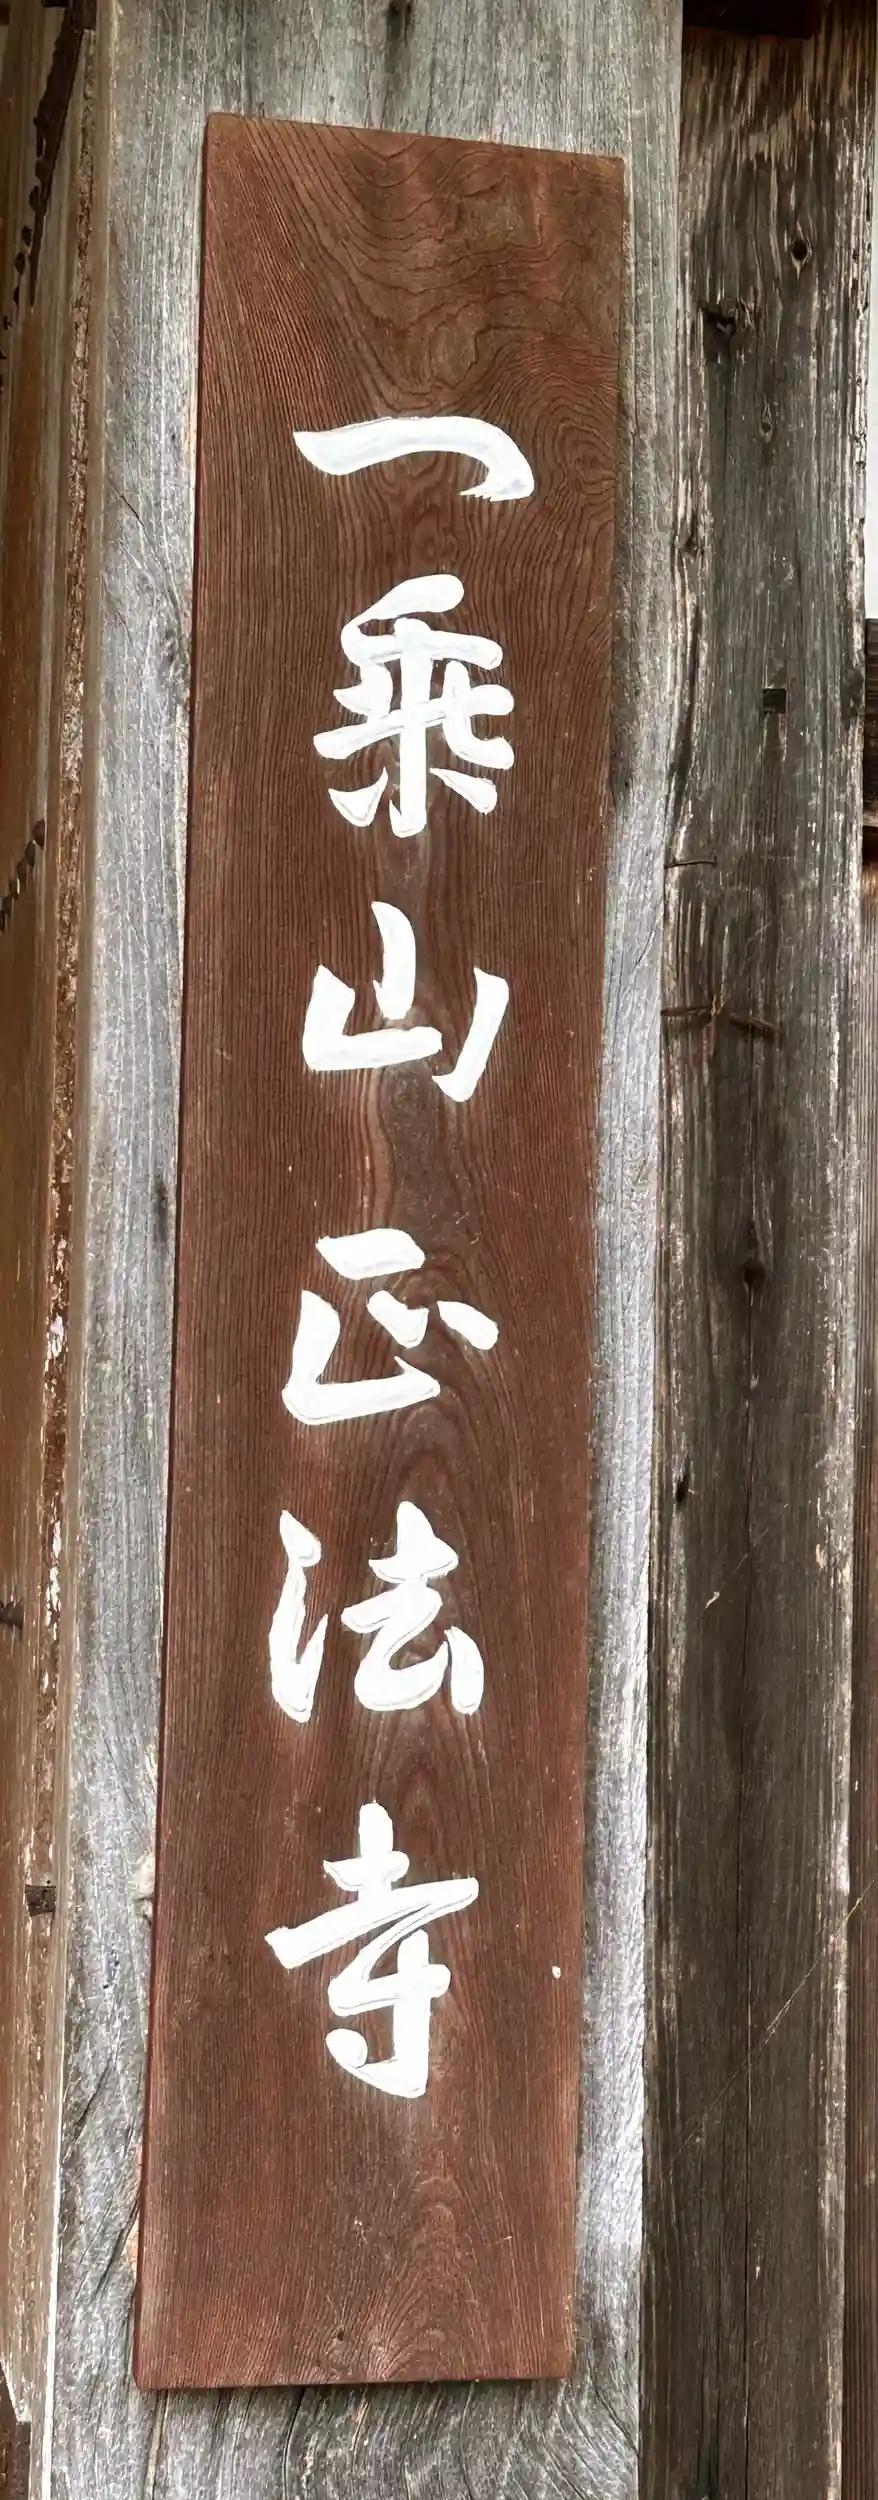 一乗山正法寺